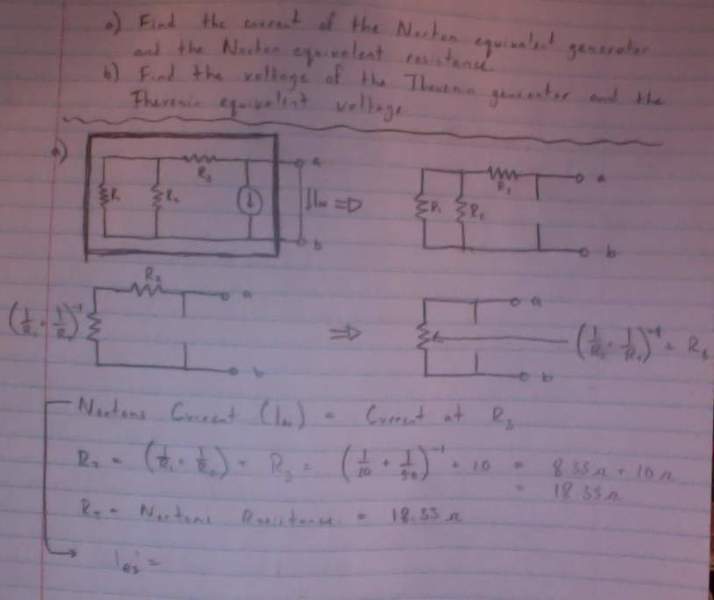 a) Find the current of the Norton equivalent generator
and the Norton equivalent resistance.
b) Find the voltage of the Thevenin generator and the
Thevenin equivalent voltage
a)
R₁ R₂ R₃ a b ⇒ R₁ R₂ R₃ a b
(1/R₁ + 1/R₂)⁻¹ R₃ a b ⇒ a b (1/R₁ + 1/R₂)⁻¹ + R₃
Nortons Current (I) = Current at R₃
= (1/R₁ + 1/R₂) + R₃ = (1/10 + 1/50)⁻¹ + 10 = 8.33Ω + 10Ω
= 18.33Ω
= Nortons Resistance = 18.33Ω